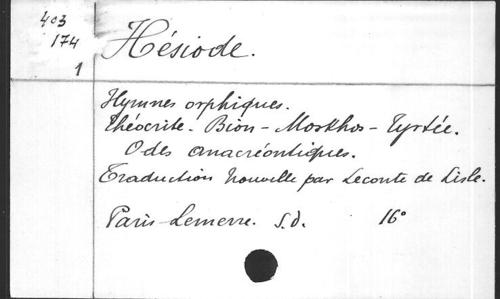 403
174
1
Hésiode.
Hymnes orphiques.
Théocrite - Bion - Moskhos - Tyrtée.
Odes anacréontiques.
Traduction nouvelle par Leconte de Lisle.
Paris - Lemerre. s.d. 16°